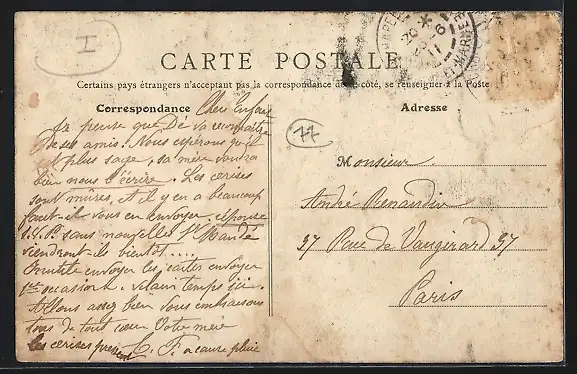 I
CARTE POSTALE
Certains pays étrangers n'acceptant pas la correspondance de ce côté, se renseigner à la Poste
Correspondance
Adresse
Chers Enfants
Je pense que Dé va connaître
ses amis! Nous espérons qu'il
plus sage, sa mère voudra
bien nous l'écrire. Les cerises
sont mûres, et il y en a beaucoup
faut-il vous en envoyer, réponse
S.V.P. sans nouvelles St Mandé
viendront-ils bientôt....
Inutile envoyer les cartes envoyer
1re occasion. vilain temps ici.
Allons assez bien Vous embrassons
tous de tout cœur Votre mère
les cerises pressent C. F. a cause pluie
77
Monsieur
André Renaudin
37 Rue de Vaugirard 37
Paris